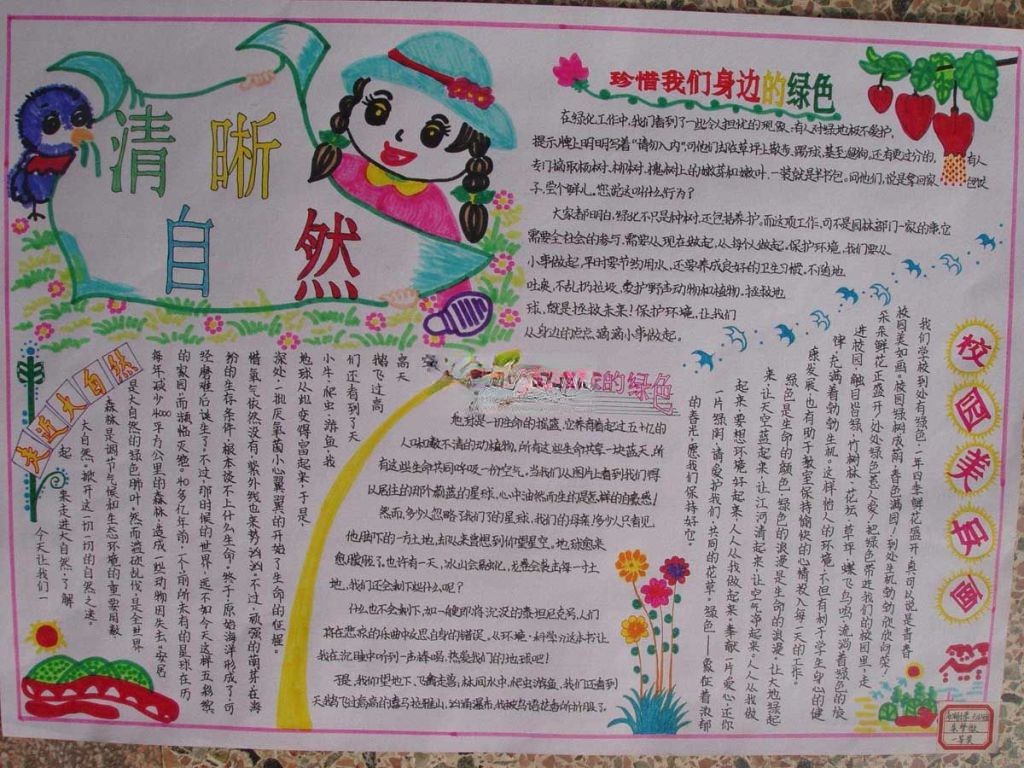 清晰
自然
珍惜我们身边的绿色
在绿化工作中,我们看到了一些令人担忧的现象。有人对绿地极不爱护,
提示牌上明明写着“请勿入内”,可他们却在草坪上散步、踢球,甚至遛狗,还有更过分的,有人
专门摘取杨树、柳树、槐树上的嫩芽和嫩叶,一装就是半书包。问他们,说是拿回家包饺
子,尝个鲜儿。您说这叫什么行为?
大家都明白,绿化不只是种树,还包括养护。而这项工作,可不是园林部门一家的事,它
需要全社会的参与,需要从现在做起,从将以做起,保护环境,我们要从
小事做起,平时要节约用水,还要养成良好的卫生习惯,不随地
吐痰,不乱扔垃圾,爱护野生动物和植物,拯救地
球,就是拯救未来!保护环境,让我们
从身边的点点滴滴小事做起。
校园美如画
我们学校到处有绿色,一年四季鲜花盛开,真可以说是青青
校园美如画。校园绿树成荫,春色满园!到处生机勃勃欣欣向荣!
朵朵鲜花正盛开,处处绿色惹人爱,把绿色带进我们的校园里,走
进校园,触目皆绿,竹树林、花坛、草坪、蝶飞鸟鸣,流淌着绿色的旋
律,充满着勃勃生机。这样怡人的环境,不但有利于学生身心的健
康发展,也有助于教室保持愉快的心情投入每一天的工作。
绿色是生命的颜色,绿色的浪漫是生命的浪漫,让大地绿起
来,让天空蓝起来,让江河清起来,让空气净起来。人人从我做
起来,要想环境好起来,人人从我做起来,奉献一片爱心,还你
一片绿阴,请爱护我们,共同的花草。绿色——象征着浓郁
的春光,愿我们保持好它。
走进大自然
今天让我们一
起来走进大自然,了解
大自然,掀开这一切一切的自然之谜。
森林是调节气候和生态环境的重要因素
是大自然的绿色肺叶,然而滥砍乱伐,是全世界
每年减少4000平方公里的森林,造成一些动物因失去“安居
的家园”而濒临灭绝。40多亿年前,一个前所未有的星球在历
经磨难后诞生了,不过,那时候的世界,远不如今天这样五彩缤
纷的生存条件,根本谈不上什么生命,终于,原始海洋形成了,可
惜氧气依然没有,紫外线也来势汹汹,不过,顽强的萌芽在海
深处,一批厌氧菌小心翼翼的开始了生命的征程。
地球从此变得富起来,于是,
小牛,爬虫,游鱼,我
们还看到了天
鹅飞过高
高天
的绿色
地球是一切生命的摇篮,它养育着起过五十亿的
人味数不清的动植物,所有这些生命共享一块蓝天,所
有这些生命共同呼吸一份空气,当我们从图片上看到我们得
以居住的那个蔚蓝的星球,心中油然而生的是怎样的自豪感!
然而,多少人忽略了我们的星球,我们的母亲!多少人只看见
他脚下的一方土地,却从来曾想到仰望星空。地球愈来
愈朦胧了,也许有一天,冰山会融化,龙卷会袭击每一寸土
地,我们还会剩下些什么呢?
什么也不会剩下,如一艘即将沉没的泰坦尼克号,人们
将在悲哀的乐曲中反思自身的错误,《环境·科学》这本书让
我在沉睡中听到一声棒喝,热爱我们的地球吧!
于是,我仰望地下,飞禽走兽,林间水中,爬虫游鱼,我们还看到
天鹅飞过高高的喜马拉雅山,汹涌瀑布,我被鸟语花香所折服了。
一等奖